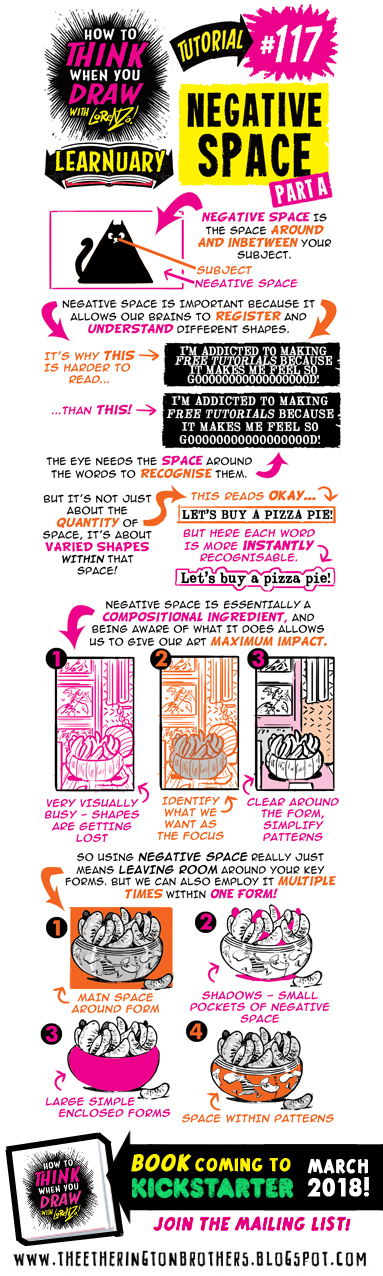 HOW TO
THINK
WHEN YOU
DRAW
WITH LORENZO!
TUTORIAL
#117
LEARNUARY
NEGATIVE
SPACE
PART A
NEGATIVE SPACE IS
THE SPACE AROUND
AND INBETWEEN YOUR
SUBJECT.
SUBJECT
NEGATIVE SPACE
NEGATIVE SPACE IS IMPORTANT BECAUSE IT
ALLOWS OUR BRAINS TO REGISTER AND
UNDERSTAND DIFFERENT SHAPES.
IT'S WHY THIS
IS HARDER TO
READ...
I'M ADDICTED TO MAKING
FREE TUTORIALS BECAUSE
IT MAKES ME FEEL SO
GOOOOOOOOOOOOOOOOOD!
...THAN THIS!
I'M ADDICTED TO MAKING
FREE TUTORIALS BECAUSE
IT MAKES ME FEEL SO
GOOOOOOOOOOOOOOOOOD!
THE EYE NEEDS THE SPACE AROUND
THE WORDS TO RECOGNISE THEM.
BUT IT'S NOT JUST
ABOUT THE
QUANTITY OF
SPACE, IT'S ABOUT
VARIED SHAPES
WITHIN THAT
SPACE!
THIS READS OKAY...
LET'S BUY A PIZZA PIE!
BUT HERE EACH WORD
IS MORE INSTANTLY
RECOGNISABLE.
Let's buy a pizza pie!
NEGATIVE SPACE IS ESSENTIALLY A
COMPOSITIONAL INGREDIENT, AND
BEING AWARE OF WHAT IT DOES ALLOWS
US TO GIVE OUR ART MAXIMUM IMPACT.
1
2
3
VERY VISUALLY
BUSY - SHAPES
ARE GETTING
LOST
IDENTIFY
WHAT WE
WANT AS
THE FOCUS
CLEAR AROUND
THE FORM,
SIMPLIFY
PATTERNS
SO USING NEGATIVE SPACE REALLY JUST
MEANS LEAVING ROOM AROUND YOUR KEY
FORMS. BUT WE CAN ALSO EMPLOY IT MULTIPLE
TIMES WITHIN ONE FORM!
1
MAIN SPACE
AROUND FORM
2
SHADOWS - SMALL
POCKETS OF NEGATIVE
SPACE
3
LARGE SIMPLE
ENCLOSED FORMS
4
SPACE WITHIN PATTERNS
HOW TO
THINK
WHEN YOU
DRAW
WITH LORENZO!
BOOK COMING TO
KICKSTARTER
MARCH
2018!
JOIN THE MAILING LIST!
WWW.THEETHERINGTONBROTHERS.BLOGSPOT.COM